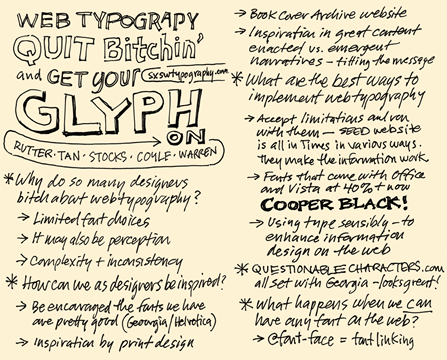 WEB TYPOGRAPY
QUIT Bitchin'
and GET YOUR sxswtypography.com
GLYPH
ON
RUTTER · TAN · STOCKS · COYLE · WARREN
* Why do so many designers
bitch about webtypography?
→ Limited font choices
→ It may also be perception
→ Complexity + inconsistency
* How can we as designers be inspired?
→ Be encouraged the fonts we have
are pretty good (Georgia/Helvetica)
→ inspiration by print design
→ Book Cover Archive website
→ Inspiration in great content
enacted vs. emergent
narratives - fitting the message
* What are the best ways to
implement webtypography
→ Accept limitations and run
with them — SEED website
is all in Times in various ways.
they make the information work
→ Fonts that come with Office
and Vista at 40% + now
COOPER BLACK!
→ Using type sensibly - to
enhance information
design on the web
* QUESTIONABLECHARACTERS.com
all set with Georgia - looks great!
* What happens when we can
have any font on the web?
→ @font-face = font linking